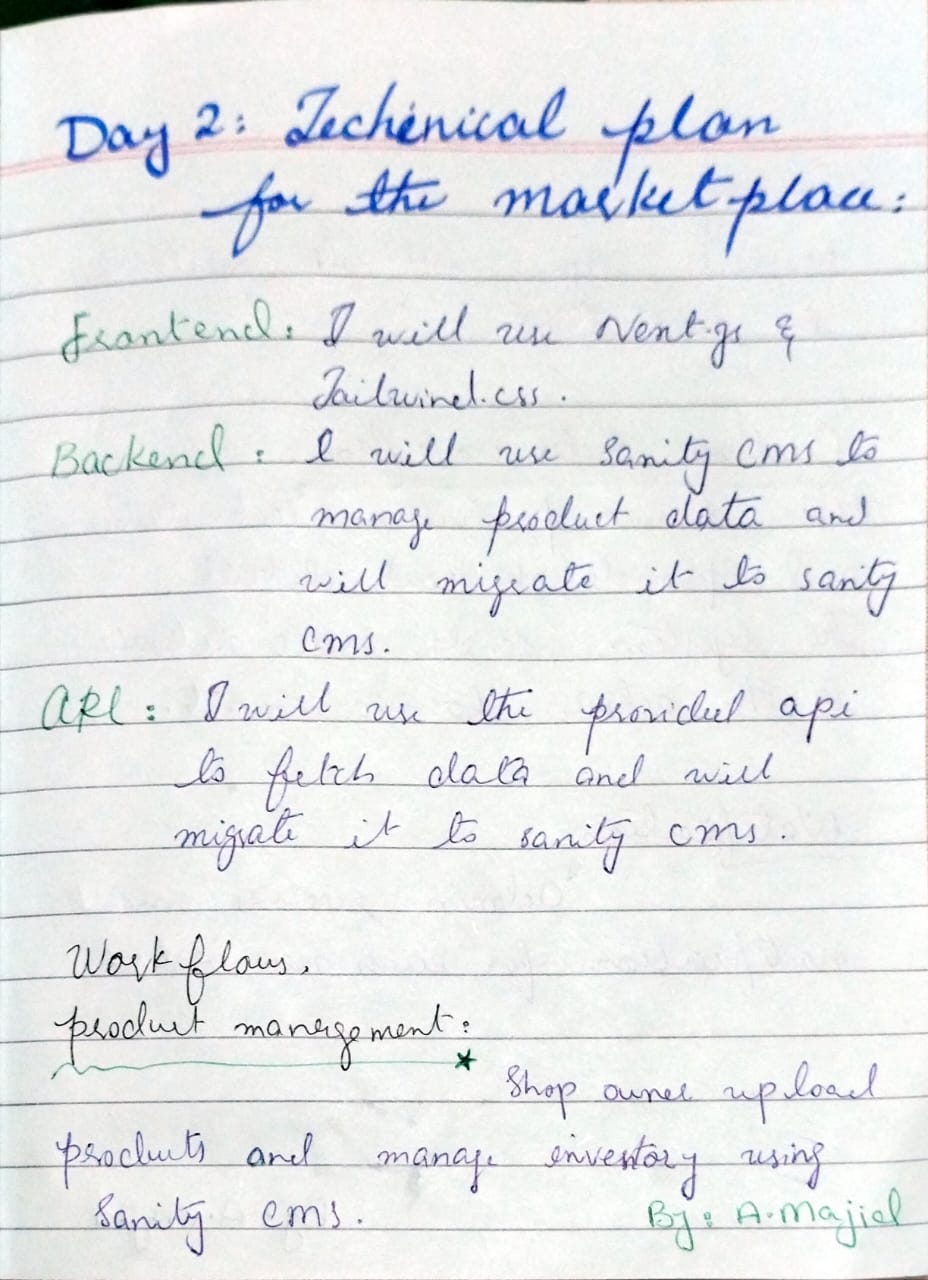 Day 2: Techenical plan
for the marketplace:
Frontend: I will use Next.js &
Tailwind.css.
Backend: I will use Sanity CMS to
manage product data and
will migrate it to sanity
CMS.
API: I will use the provided api
to fetch data and will
migrate it to sanity cms.
Work flows.
product management:
Shop owner upload
products and manage inventory using
Sanity CMS.
By: A.Majid